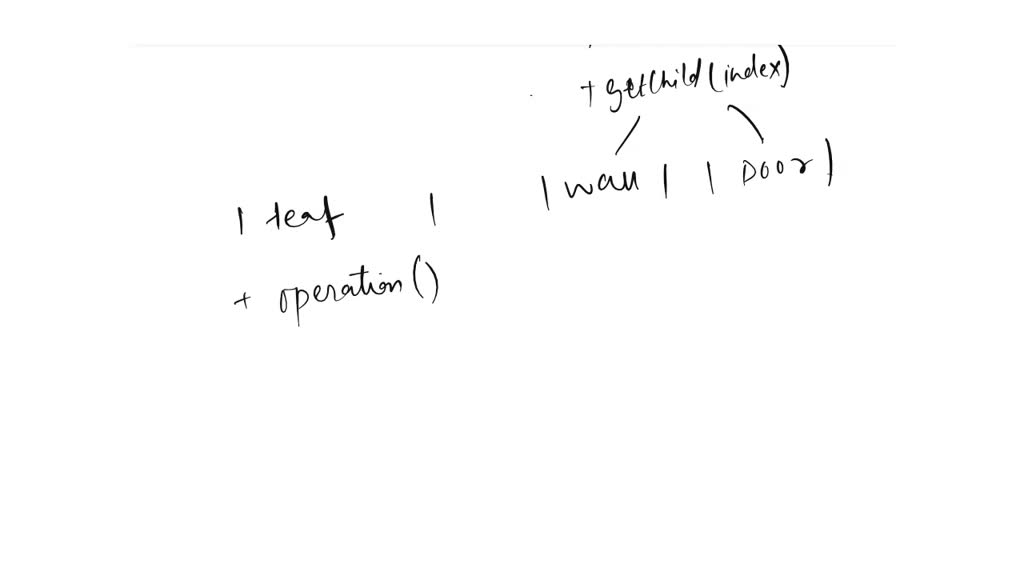 + getChild(index)
| wall | | Door |
| leaf |
+ operation()